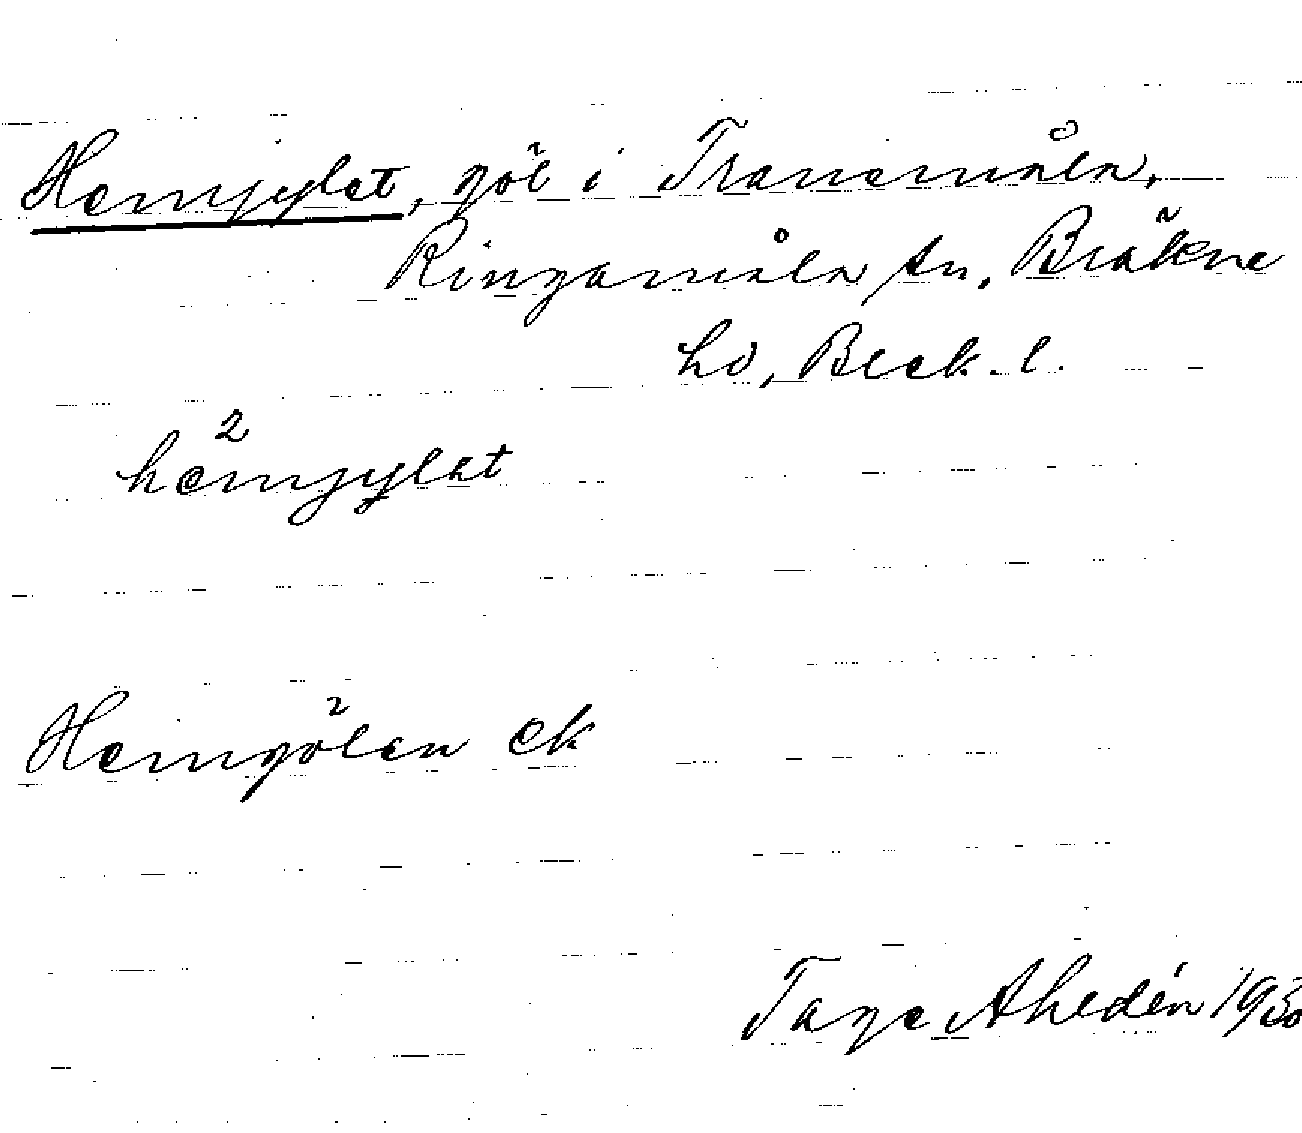 Hemjylet, göl i Tranemåla,
Ringamåla sn, Bräkne
hd, Blek. l.
hemjylet
Hemgölen ek
Tage Ahldén 1930